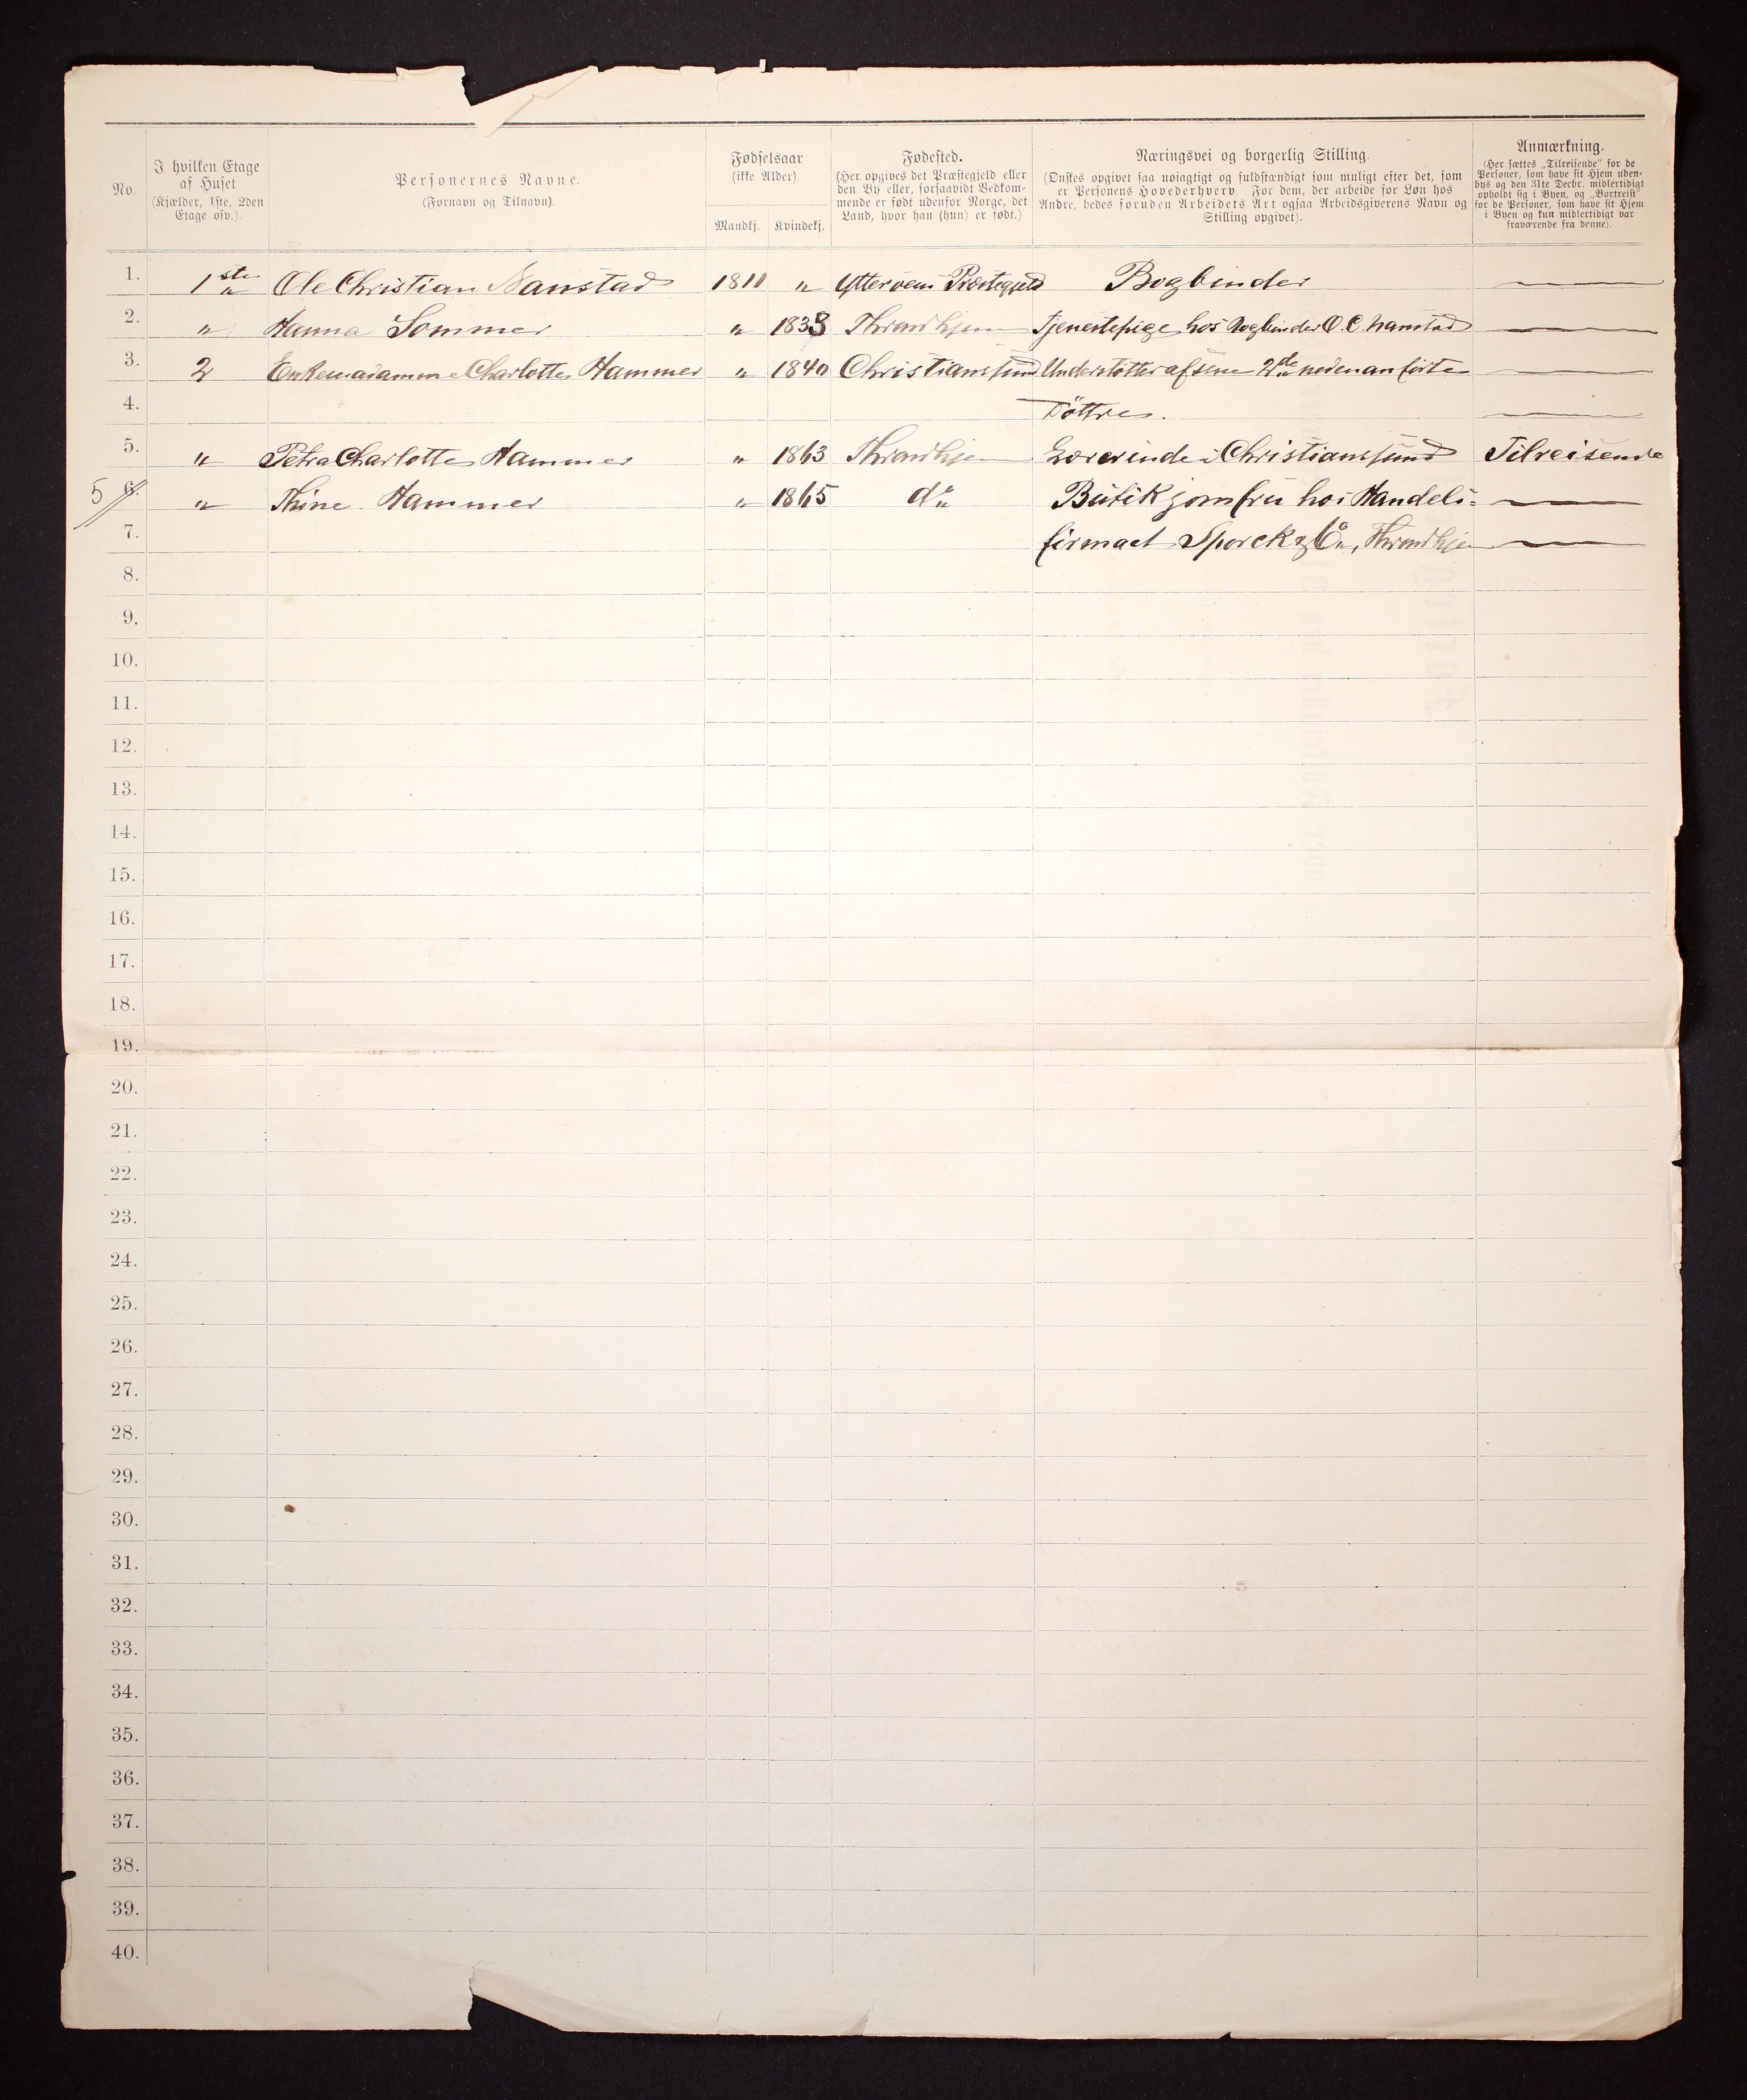 No. | I hvilken Etage af Huset (Kjælder, 1ste, 2den Etage osv.). | Personernes Navne. (Fornavn og Tilnavn) | Fødselsaar (ikke Alder). Mandkj. | Kvindekj. | Fødested. (Her opgives det Præstegjeld eller den By eller, forsaavidt Vedkommende er født udenfor Norge, det Land, hvor han (hun) er født.) | Næringsvei og borgerlig Stilling. (Ønskes opgivet saa nøiagtigt og fuldstændigt som muligt efter det, som er Personens Hovederhverv. For dem, der arbeide for Løn hos Andre, bedes foruden Arbeidets Art ogsaa Arbeidsgiverens Navn og Stilling opgivet). | Anmærkning. (Her sættes „Tilreisende" for de Personer, som have sit Hjem udenbys og den 31te Decbr. midlertidigt opholdt sig i Byen, og „Bortreist" for de Personer, som have sit Hjem i Byen og kun midlertidigt var fraværende fra denne).
1. 1ste Ole Christian Nanstad 1810 " Ytterøens Præstegjeld Bogbinder
2. " Hanna Sommer " 1838 Throndhjem Tjenestepige hos Bogbinder O. C. Nanstad
3. 2 Enkemadamme Charlotte Hammer " 1840 Christianssund Understøttes af sine 2de nedenanførte
4. Döttre.
5. " Petra Charlotte Hammer " 1863 Throndhjem Lærerinde i Christianssund Tilreisende
5 6. " Thine Hammer " 1865 do Butikjomfru hos Handels-
7. firmaet Sporck & Co, Throndhjem
8.
9.
10.
11.
12.
13.
14.
15.
16.
17.
18.
19.
20.
21.
22.
23.
24.
25.
26.
27.
28.
29.
30.
31.
32.
33.
34.
35.
36.
37.
38.
39.
40.